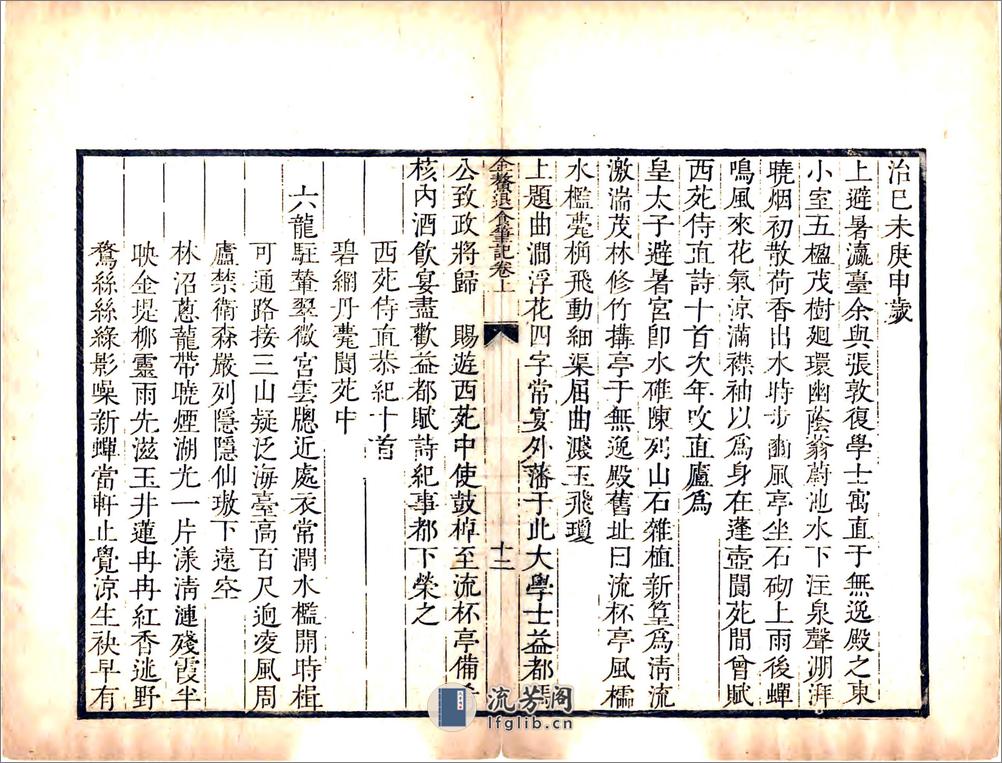 治己未庚申歲
上避暑瀛臺余與張敦復學士寓直于無逸殿之東
小室五楹茂樹廻環幽蔭蓊蔚池水下注泉聲淜湃
曉烟初散荷香出水時步豳風亭坐石砌上雨後蟬
鳴風來花氣涼滿襟袖以為身在蓬壺閬苑間曾賦
西苑侍直詩十首次年改直廬為
皇太子避暑宮卽水碓陳列山石雜植新篁為清流
激湍茂林修竹搆亭于無逸殿舊址曰流杯亭風櫺
水檻甍桷飛動細渠屈曲潑玉飛瓊
上題曲澗浮花四字常宴外藩于此大學士益都
金鰲退食筆記卷上
十二
公致政將歸 賜遊西苑中使鼓棹至流杯亭備
核內酒飲宴盡歡益都賦詩紀事都下榮之
西苑侍直恭紀十首
碧網丹甍閬苑中
六龍駐輦翠微宮雲牕近處衣常潤水檻開時楫
可通路接三山疑泛海臺高百尺逈凌風周
廬禁衛森嚴列隱隱仙璈下遠空
林沼蔥蘢帶曉煙湖光一片漾清漣殘霞半
映金堤柳靈雨先滋玉井蓮冉冉紅香逃野
鶩絲絲綠影噪新蟬當軒止覺涼生袂早有
流芳阁
lfglib.cn